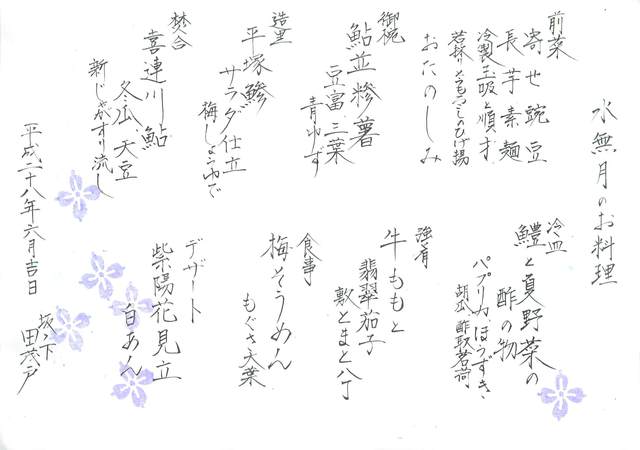 水無月のお料理
前菜
寄せ豌豆
長芋素麺
冷製玉吸と順才
若採りとうもろこしのひげ揚
おたのしみ
御椀
鮎並糝薯
豆富 三葉
青ゆず
造里
平塚鯵
サラダ仕立
梅しょうゆで
焚合
喜連川鮎
冬瓜 天豆
新じゃがすり流し
冷皿
鱧と夏野菜の
酢の物
パプリカ ほうずき
胡瓜 酢取茗荷
強肴
牛ももと
翡翠茄子
敷とまと八丁
食事
梅そうめん
もぐさ大葉
デザート
紫陽花見立
白あん
平成二十八年六月吉日
坂ノ下
田茂戸